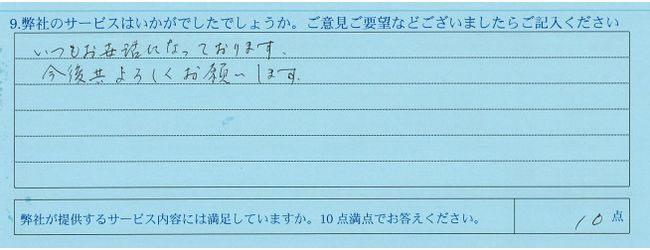 9.弊社のサービスはいかがでしたでしょうか。ご意見ご要望などございましたらご記入ください
いつもお世話になっております.
今後共よろしくお願いします.
弊社が提供するサービス内容には満足していますか。10点満点でお答えください。
10 点